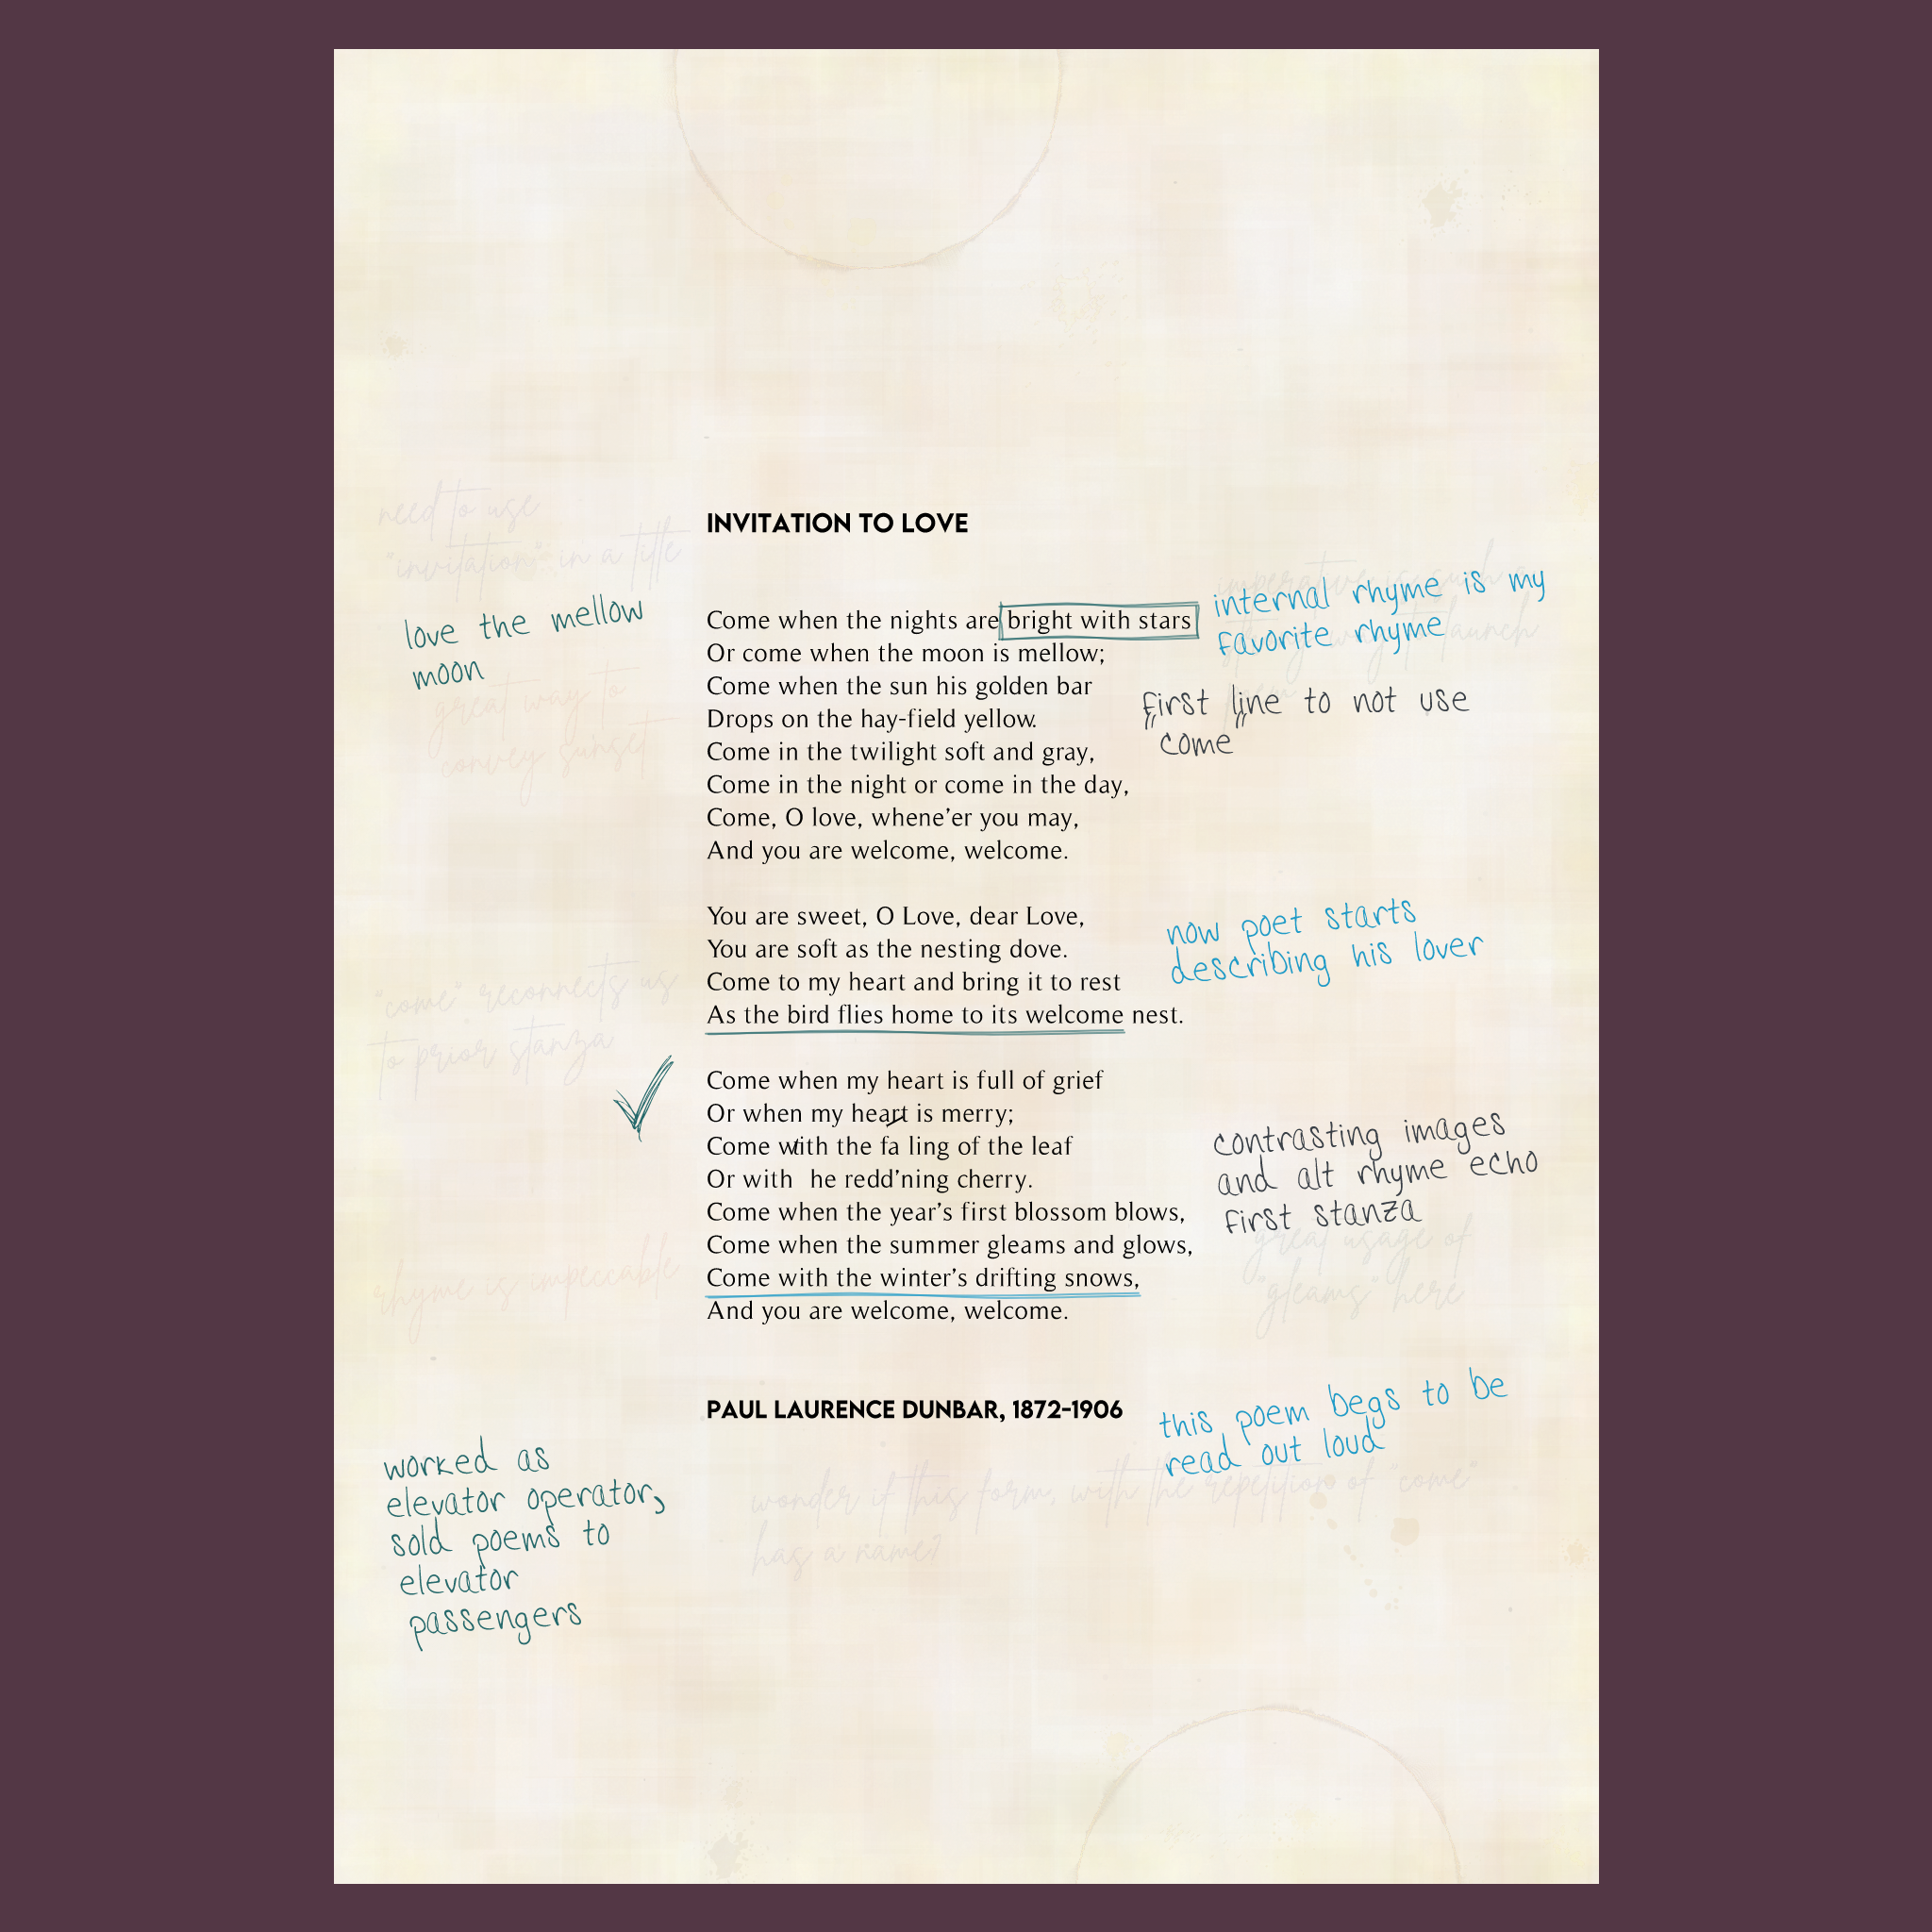 need to use
"invitation" in a title
INVITATION TO LOVE
love the mellow
moon
great way to
convey sunset
Come when the nights are bright with stars
Or come when the moon is mellow;
Come when the sun his golden bar
Drops on the hay-field yellow.
Come in the twilight soft and gray,
Come in the night or come in the day,
Come, O love, whene'er you may,
And you are welcome, welcome.
internal rhyme is my
favorite rhyme
imperative is such a
launch
first line to not use
"come"
You are sweet, O Love, dear Love,
You are soft as the nesting dove.
Come to my heart and bring it to rest
As the bird flies home to its welcome nest.
now poet starts
describing his lover
"come" reconnects us
to prior stanza
Come when my heart is full of grief
Or when my heart is merry;
Come with the fa ling of the leaf
Or with he redd'ning cherry.
Come when the year's first blossom blows,
Come when the summer gleams and glows,
Come with the winter's drifting snows,
And you are welcome, welcome.
contrasting images
and alt rhyme echo
first stanza
great usage of
"gleams" here
rhyme is impeccable
PAUL LAURENCE DUNBAR, 1872-1906
this poem begs to be
read out loud
worked as
elevator operator,
sold poems to
elevator
passengers
wonder if this form, with the repetition of "come"
has a name?